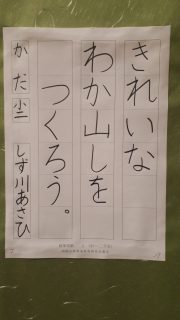 きれいな
わか山しを
つくろう。
かだ小二 しず川あさひ